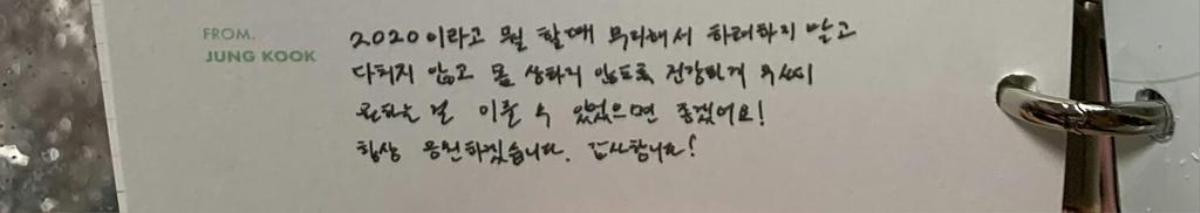 FROM.
JUNG KOOK
2020이라고 뭘 할때 무리해서 하려하지 말고
다치지 않고 몸 상하지 않도록 건강하게
원하는 걸 이룰 수 있었으면 좋겠어요!
항상 응원하겠습니다. 감사합니다!